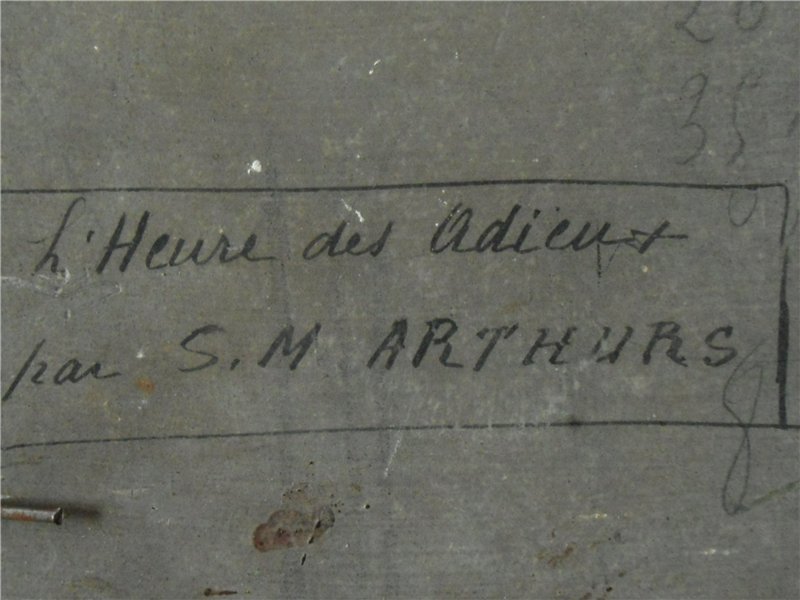 20
35
L'Heure des Adieux
par S. M ARTHURS